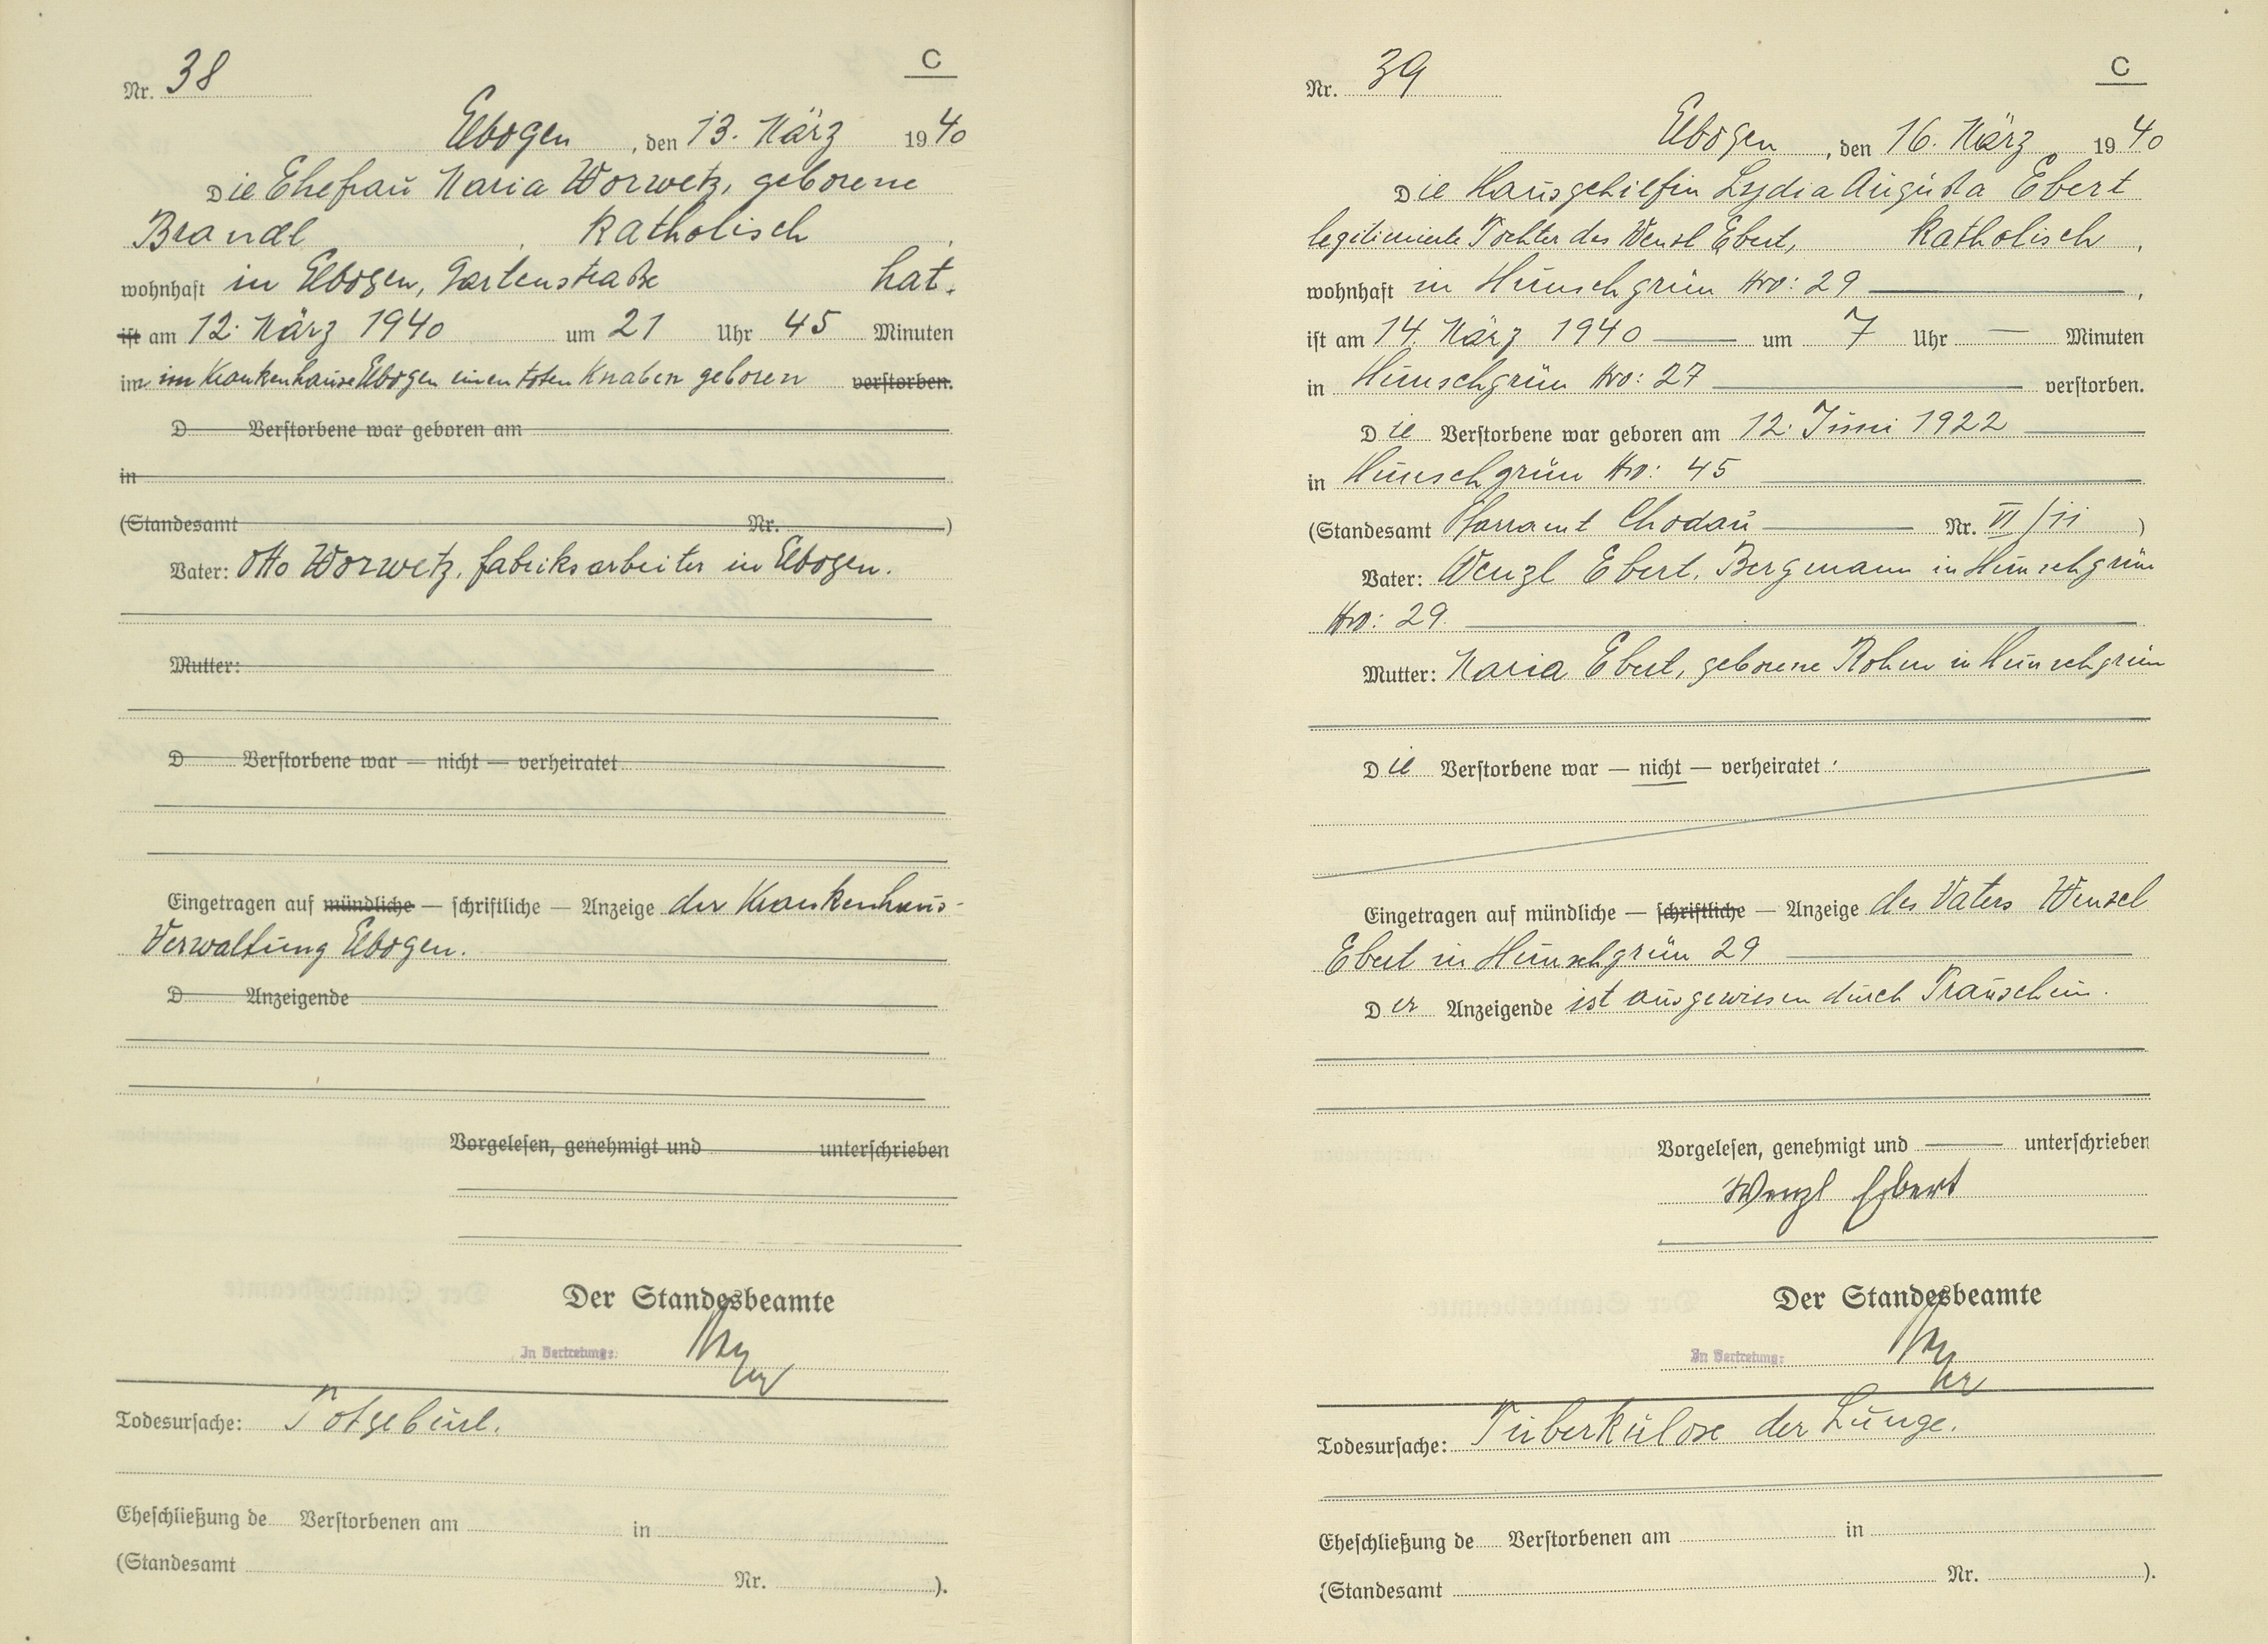 C
Nr. 38
Elbogen, den 13. März 1940
Die Ehefrau Maria Worwetz, geborene
Brandl, katholisch,
wohnhaft in Elbogen, Gartenstraße hat.
ist am 12. März 1940 um 21 Uhr 45 Minuten
im im Krankenhause Elbogen einen toten Knaben geboren verstorben.
D Verstorbene war geboren am
in
(Standesamt Nr. )
Vater: Otto Worwetz, Fabriksarbeiter in Elbogen.
Mutter:
D Verstorbene war — nicht — verheiratet
Eingetragen auf mündliche — schriftliche — Anzeige der Krankenhaus-
Verwaltung Elbogen.
D Anzeigende
Vorgelesen, genehmigt und unterschrieben
Der Standesbeamte
In Vertretung:
Todesursache: Totgeburt.
Eheschließung de Verstorbenen am in
(Standesamt Nr. ).
C
Nr. 39
Elbogen, den 16. März 1940
Die Hausgehilfin Lydia Augusta Ebert
legitimierte Tochter des Wenzl Ebert, katholisch,
wohnhaft in Hunschgrün Nro: 29,
ist am 14. März 1940 um 7 Uhr — Minuten
in Hunschgrün Nro: 27 verstorben.
Die Verstorbene war geboren am 12. Juni 1922
in Hunschgrün Nro: 45
(Standesamt Pfarramt Chodau Nr. VI/11)
Vater: Wenzl Ebert, Bergmann in Hunschgrün
Nro: 29.
Mutter: Maria Ebert, geborene Rohm in Hunschgrün
Die Verstorbene war — nicht — verheiratet.
Eingetragen auf mündliche — schriftliche — Anzeige des Vaters Wenzel
Ebert in Hunschgrün 29
Der Anzeigende ist ausgewiesen durch Trauschein.
Vorgelesen, genehmigt und — unterschrieben
Wenzl Ebert
Der Standesbeamte
In Vertretung:
Todesursache: Tuberkulose der Lunge.
Eheschließung de Verstorbenen am in
(Standesamt Nr. ).